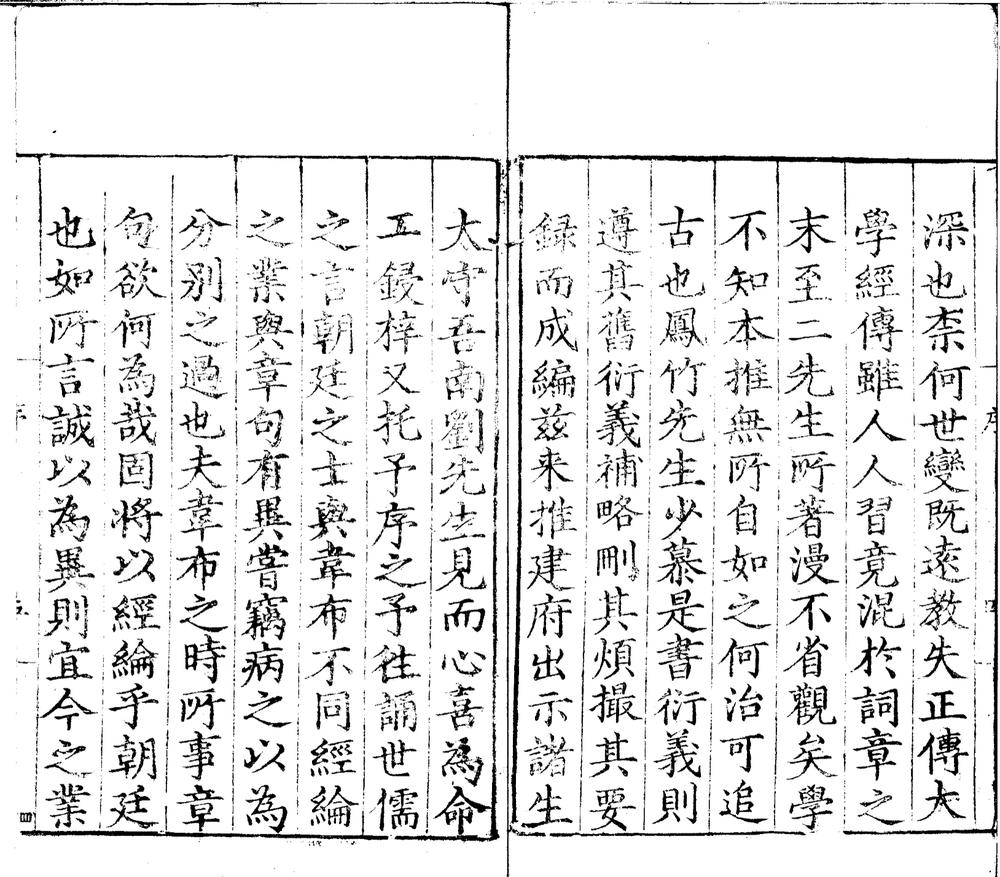 深也柰何世變既遠教失正傳大
學經傳雖人人習竟混於詞章之
末至二先生所著漫不省觀矣學
不知本推無所自如之何治可追
古也鳳竹先生少慕是書衍義則
遵其舊衍義補略刪其煩撮其要
録而成編茲来推建府出示諸生
太守吾南劉先生見而心喜為命
工鋟梓又托予序之予徃誦世儒
之言朝廷之士與韋布不同經綸
之業與章句有異嘗竊病之以為
分别之過也夫韋布之時所事章
句欲何為哉固將以經綸乎朝廷
也如所言誠以為異則宜今之業